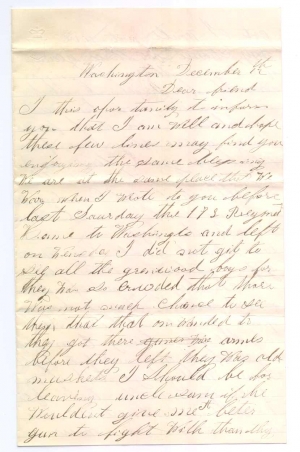 Washington December
Dear friend
I this opertunity to inform
you that I am well and hope
these few lines may find you
enjoying the same blessing
We are at the same place that We
Was when I wrote to you before
last Saurday the 183
came to Washington and left
on I did not get to
see all the greenwood boys for
they was so Crouded that thare
Was not much Chance to see
them that that on banded to
they got there arms
before they left they Was old
muskets I Should be for
leaving unclesam if he
Wouldent give me a beter
gun to fight With than